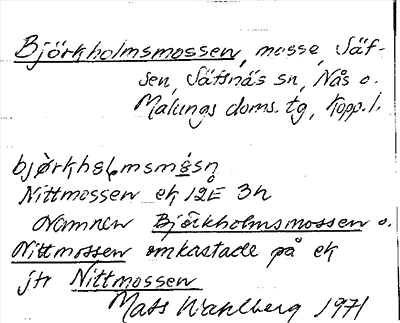 Björkholmsmossen, mosse, Säf-
sen, Säfsnäs sn, Nås o.
Malungs doms. tg, Kopp. l.
Nittmossen ek 12E 3h
Namnen Björkholmsmossen o.
Nittmossen omkastade på ek
jfr Nittmossen
Mats Wahlberg 1971